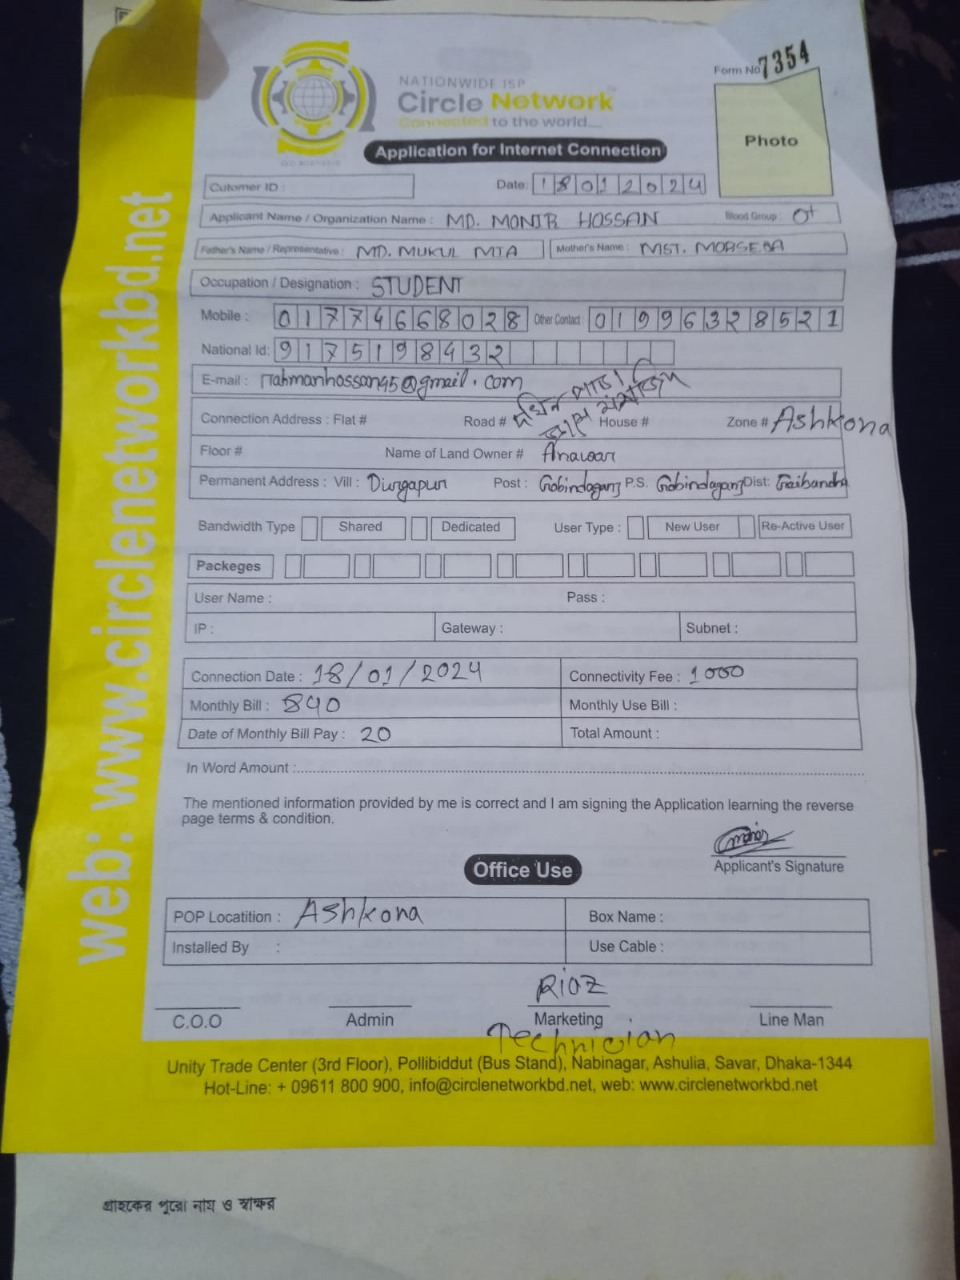 Form No 7354
NATIONWIDE ISP
Circle Network
Connected to the world...
Photo
Application for Internet Connection
Cutomer ID :
Date: 18012024
Applicant Name / Organization Name : MD. MONIR HOSSAN Blood Group : O+
Father's Name / Representative : MD. MUKUL MIA Mother's Name : MST. MORSEDA
Occupation / Designation : STUDENT
Mobile : 01774668028 Other Contact 01996328521
National Id: 9175198432
E-mail : rahmanhossan45@gmail.com
Connection Address : Flat # Road # House # Zone # Ashkona
Floor # Name of Land Owner # Anawar
Permanent Address : Vill : Durgapur Post : Gobindaganj P.S. Gobindaganj Dist: Gaibandha
Bandwidth Type Shared Dedicated User Type : New User Re-Active User
Packeges
User Name : Pass :
IP : Gateway : Subnet :
Connection Date : 18/01/2024 Connectivity Fee : 1000
Monthly Bill : 840 Monthly Use Bill :
Date of Monthly Bill Pay : 20 Total Amount :
In Word Amount :
The mentioned information provided by me is correct and I am signing the Application learning the reverse
page terms & condition.
Applicant's Signature
Office Use
POP Locatition : Ashkona Box Name :
Installed By : Use Cable :
Riaz
C.O.O Admin Marketing Line Man
Technician
Unity Trade Center (3rd Floor), Pollibiddut (Bus Stand), Nabinagar, Ashulia, Savar, Dhaka-1344
Hot-Line: + 09611 800 900, info@circlenetworkbd.net, web: www.circlenetworkbd.net
web: www.circlenetworkbd.net
গ্রাহকের পুরো নাম ও স্বাক্ষর